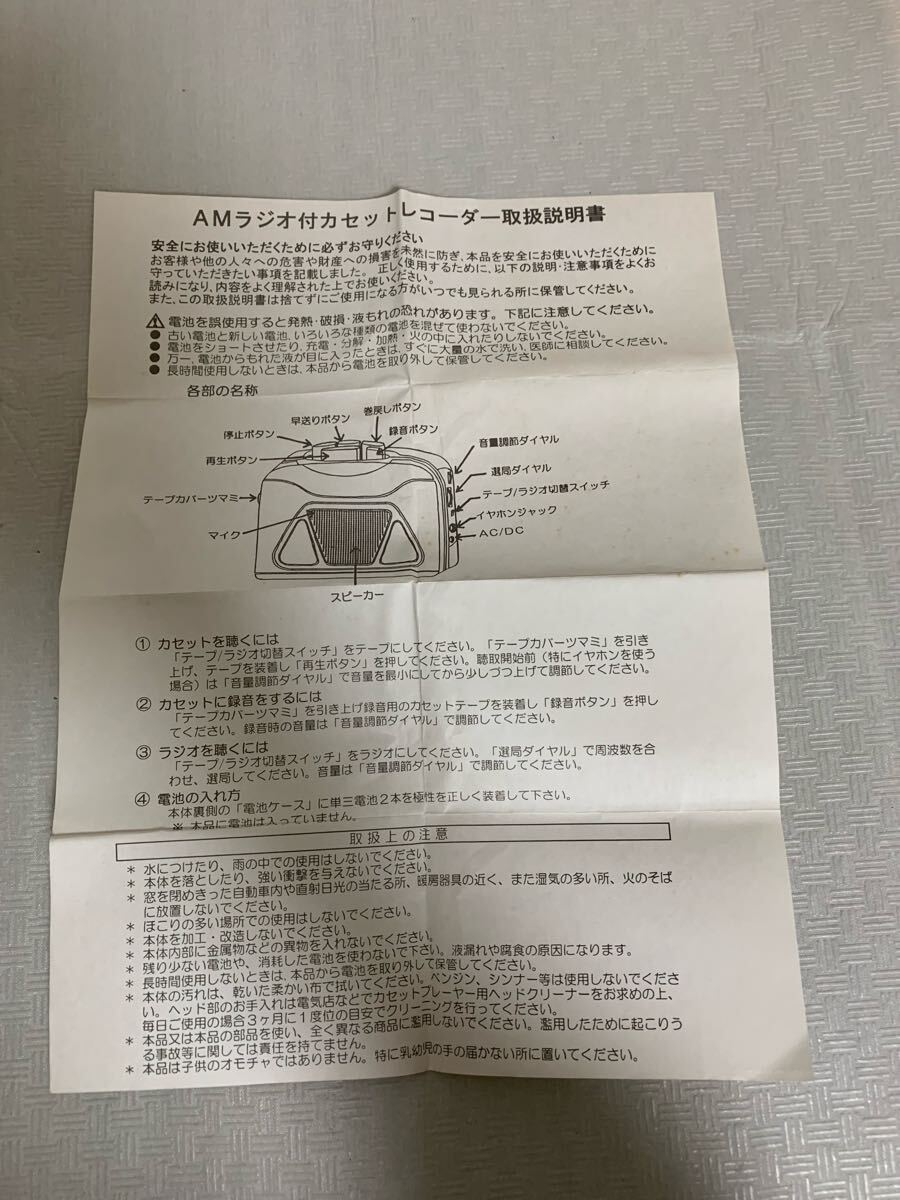 AMラジオ付カセットレコーダー取扱説明書
安全にお使いいただくために必ずお守りください
お客様や他の人々への危害や財産への損害を未然に防ぎ、本品を安全にお使いいただくために
守っていただきたい事項を記載しました。 正しく使用するために、以下の説明・注意事項をよくお
読みになり、内容をよく理解された上でお使いください。
また、この取扱説明書は捨てずにご使用になる方がいつでも見られる所に保管してください。
電池を誤使用すると発熱・破損・液もれの恐れがあります。下記に注意してください。
● 古い電池と新しい電池、いろいろな種類の電池を混ぜて使わないでください。
● 電池をショートさせたり、充電・分解・加熱・火の中に入れたりしないでください。
● 万一、電池からもれた液が目に入ったときは、すぐに大量の水で洗い、医師に相談してください。
● 長時間使用しないときは、本品から電池を取り外して保管してください。
各部の名称
巻戻しボタン
早送りボタン
停止ボタン
録音ボタン
再生ボタン
音量調節ダイヤル
選局ダイヤル
テープ/ラジオ切替スイッチ
テープカバーツマミ
イヤホンジャック
マイク
AC/DC
スピーカー
① カセットを聴くには
「テープ/ラジオ切替スイッチ」をテープにしてください。「テープカバーツマミ」を引き
上げ、テープを装着し「再生ボタン」を押してください。聴取開始前（特にイヤホンを使う
場合）は「音量調節ダイヤル」で音量を最小にしてから少しづつ上げて調節してください。
② カセットに録音をするには
「テープカバーツマミ」を引き上げ録音用のカセットテープを装着し「録音ボタン」を押し
てください。録音時の音量は「音量調節ダイヤル」で調節してください。
③ ラジオを聴くには
「テープ/ラジオ切替スイッチ」をラジオにしてください。「選局ダイヤル」で周波数を合
わせ、選局してください。音量は「音量調節ダイヤル」で調節してください。
④ 電池の入れ方
本体裏側の「電池ケース」に単三電池2本を極性を正しく装着して下さい。
※ 本品に電池は入っていません。
取扱上の注意
* 水につけたり、雨の中での使用はしないでください。
* 本体を落としたり、強い衝撃を与えないでください。
* 窓を閉めきった自動車内や直射日光の当たる所、暖房器具の近く、また湿気の多い所、火のそば
に放置しないでください。
* ほこりの多い場所での使用はしないでください。
* 本体を加工・改造しないでください。
* 本体内部に金属物などの異物を入れないでください。
* 残り少ない電池や、消耗した電池を使わないで下さい。液漏れや腐食の原因になります。
* 長時間使用しないときは、本品から電池を取り外して保管してください。
* 本体の汚れは、乾いた柔かい布で拭いてください。ベンジン、シンナー等は使用しないでくださ
い。ヘッド部のお手入れは電気店などでカセットプレーヤー用ヘッドクリーナーをお求めの上、
毎日ご使用の場合3ヶ月に1度位の目安でクリーニングを行ってください。
* 本品又は本品の部品を使い、全く異なる商品に濫用しないでください。濫用したために起こりう
る事故等に関しては責任を持てません。
* 本品は子供のオモチャではありません。特に乳幼児の手の届かない所に置いてください。